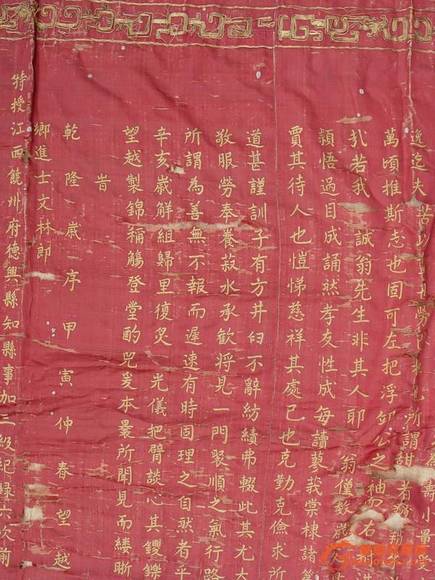 壽小量受
所謂甜者
萬頃推斯志也固可左把浮邱公之袖右
扵若我 誠翁先生非其人耶 翁僅
穎悟過目成誦然孝友性成每讀蓼莪棠棣諸篇
賈其待人也愷悌慈祥其處己也克勤克儉求所
道甚謹訓子有方井臼不辭紡績弗輟此其尤大
敬服勞奉養菽水承歡將見一門聚順之氣行路
所謂為善無不報而遲速有時固理之自然者乎
辛亥歲解組歸里復炙 光儀把臂談心其矍鑠
望越製錦稱觴登堂酌兕爰本曩所聞見而縷晰
旹
乾隆歲序甲寅仲春望越
鄉進士文林郎
特授江西饒州府德興縣知縣事加三級紀錄六次前